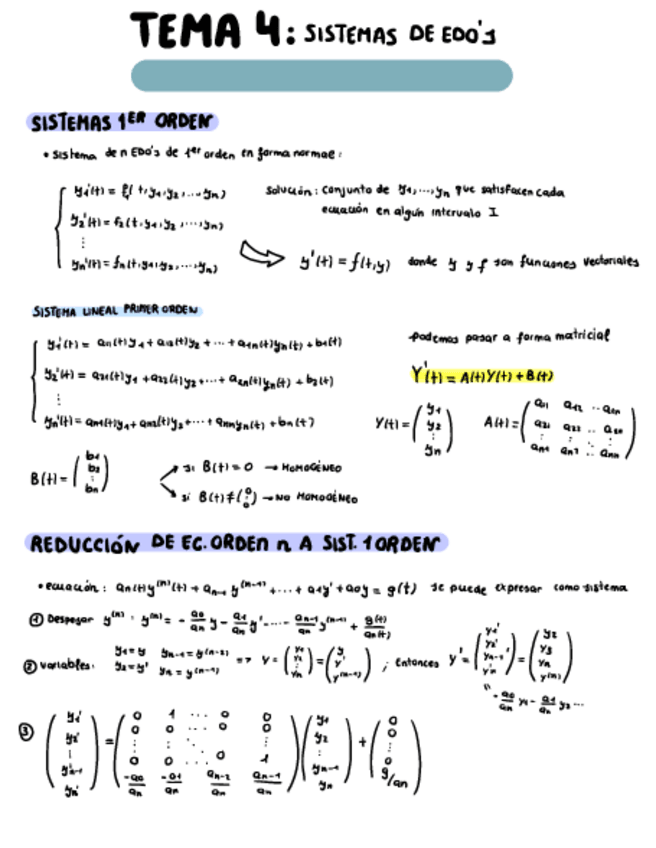 TEMA 4: SISTEMAS DE EDO'S
SISTEMAS 1ER ORDEN
• Sistema de n EDO's de 1er orden en forma normal:
y₁'(t) = f₁(t, y₁, y₂, ..., yₙ)
Solución: conjunto de y₁, ..., yₙ que satisfacen cada
y₂'(t) = f₂(t, y₁, y₂, ..., yₙ)
ecuación en algún intervalo I
⋮
yₙ'(t) = fₙ(t, y₁, y₂, ..., yₙ)
y'(t) = f(t,y) donde y y f son funciones vectoriales
SISTEMA LINEAL PRIMER ORDEN
y₁'(t) = a₁₁(t)y₁ + a₁₂(t)y₂ + ... + a₁ₙ(t)yₙ(t) + b₁(t)
•podemos pasar a forma matricial
y₂'(t) = a₂₁(t)y₁ + a₂₂(t)y₂ + ... + a₂ₙ(t)yₙ(t) + b₂(t)
Y'(t) = A(t)Y(t) + B(t)
⋮
yₙ'(t) = aₙ₁(t)y₁ + aₙ₂(t)y₂ + ... + aₙₙyₙ(t) + bₙ(t)
Y(t) = (y₁ y₂ ⋮ yₙ) A(t) = (a₁₁ a₁₂ .. a₁ₙ a₂₁ a₂₂ .. a₂ₙ ⋮ ⋮ ⋮ aₙ₁ aₙ₂ .. aₙₙ)
B(t) = (b₁ b₂ ⋮ bₙ)
si B(t) = 0 → HOMOGÉNEO
si B(t) ≠ (0 ⋮ 0) → NO HOMOGÉNEO
REDUCCIÓN DE EC. ORDEN n A SIST. 1 ORDEN
• ecuación: aₙ(t)y⁽ⁿ⁾(t) + aₙ₋₁ y⁽ⁿ⁻¹⁾ + ... + a₁y' + a₀y = g(t) se puede expresar como sistema
① Despejar y⁽ⁿ⁾: y⁽ⁿ⁾ = - a₀/aₙ y - a₁/aₙ y' - ... - aₙ₋₁/aₙ y⁽ⁿ⁻¹⁾ + g(t)/aₙ(t)
② Variables: y₁=y yₙ₋₁=y⁽ⁿ⁻²⁾ y₂=y' yₙ=y⁽ⁿ⁻¹⁾ => Y = (y₁ y₂ ⋮ yₙ) = (y y' ⋮ y⁽ⁿ⁻¹⁾) ; Entonces Y' = (y₁' y₂' yₙ₋₁' yₙ') = (y₂ y₃ yₙ y⁽ⁿ⁾)
- a₀/aₙ y₁ - a₁/aₙ y₂ ...
③ (y₁' y₂' ⋮ yₙ₋₁' yₙ') = (0 1 ... 0 0 0 0 ... 0 0 ⋮ ⋮ ⋱ ⋮ 0 0 0 1 -a₀/aₙ -a₁/aₙ aₙ₋₂/aₙ aₙ₋₁/aₙ)(y₁ y₂ ⋮ yₙ₋₁ yₙ) + (0 0 ⋮ 0 g/aₙ)